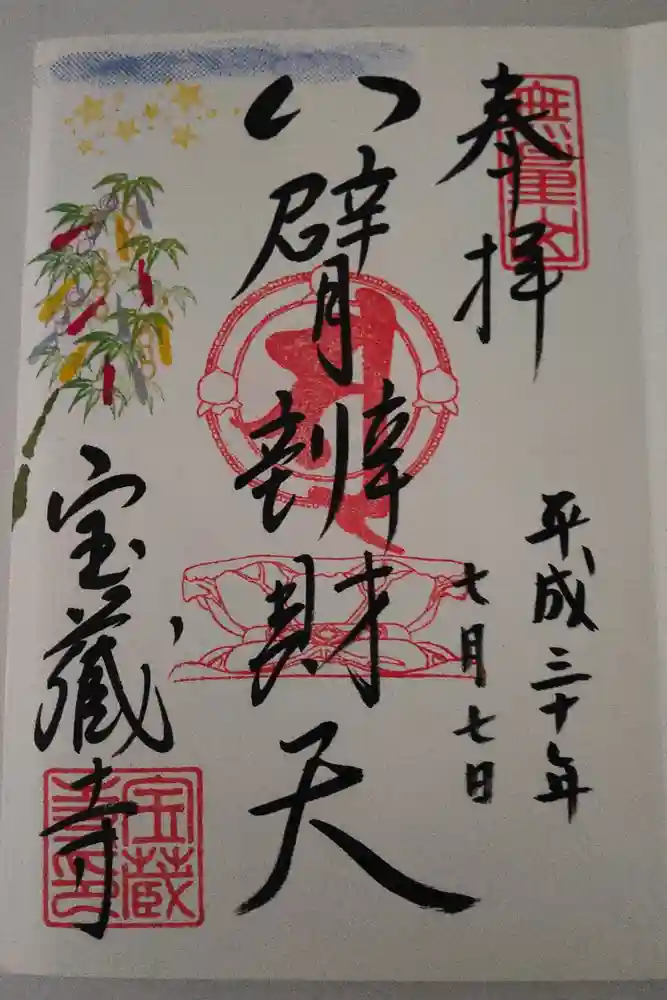 無量山
奉拝
平成三十年
七月七日
八臂辨財天
宝蔵寺
宝蔵寺印